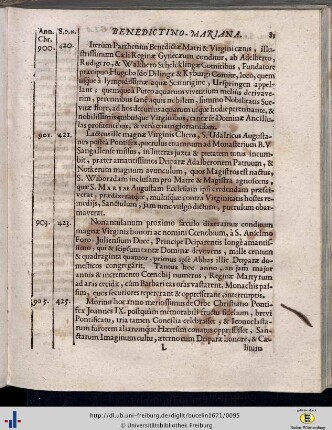 BENEDICTINO-MARIANA. 81
Ann. Chr.
S.P.N.
900. 420. Iterum Parthenin Benedictæ Matri & Virgini cætus, illu-
strissimum Cæli Reginæ Gynæceum conditur, ab Adelberto,
Rudigero, & Walthero Schelcklingæ Comitibus, Fundatore
præcipuo Hugobaldo Dilingæ & Kyburgi Comite, loco, quem
usque à lympidissimæ aquæ scaturigine, Urspringen appel-
lant; quemque à Puteo aquarum viventium melius derivave-
ris, perennibus sanè aquis nobilem, summo Nobilitatis Sue-
vicæ flore, ad hos decursus aquarum usque hodie permanente, &
nobilissimis quibusque Virginibus, tanto se Dominæ Ancillu-
las profitentibus, & vero etiam gloriantibus.
901. 421. magnæ Virginis Cliens, S. Udalricus Augusta-
nus postea Pontifex, puerulus etiamnum ad Monasterium B.V.
Sangallense missus, in literas juxta & pietatem totus incum-
bit, præter amantissimos Deiparæ Adalberonem Patruum, &
Notkerum magnum avunculum, quos Magistros est nactus,
S. Wiboradam inclusam pro Matre & Magistra agnoscens,
quæ S. MARIÆ Augustam Ecclesiam ipsi credendam præsci-
verat, prædixeratque, multosque contra Virginitatis hostes re-
mediis, Sanctulum, jam tunc vulgò dictum, puerulum obar-
maverat.
903. 423. Nonantulanum proximo sæculo diximus conditum
magnæ Virginis honori ac nomini Cœnobium, à S. Anselmo
Foro-Juliensium Duce, Principe Deiparentis longè amantis-
simo, qui & seipsum tantæ Dominæ devovens, mille centum
& quadraginta quatuor primus ipse Abbas illic Deiparæ do-
mesticos congregârit. Tantum hoc anno, an jam major
annis & incremento Cœnobii numerus, Reginæ Martyrum
ad aras cecidit, cùm Barbari eas oras vastarent, Monachis pas-
sim, quos securiores repererant & oppresserant, interemptis.
905. 425. Moritur hoc anno meritissimus de Orbe Christiano Ponti-
fex Joannes IX. postquam memorabili fructu siderium, brevi
Pontificatu, tria tamen Concilia celebrasset, & Iconoclasta-
rum furorem aliarumque Hæresim conatus oppressisset, San-
ctarum Imaginum cultu, æterno cum Deiparæ honore, & Cæ-
L litum
http://dl.ub.uni-freiburg.de/diglit/bucelin1671/0095
© Universitätsbibliothek Freiburg